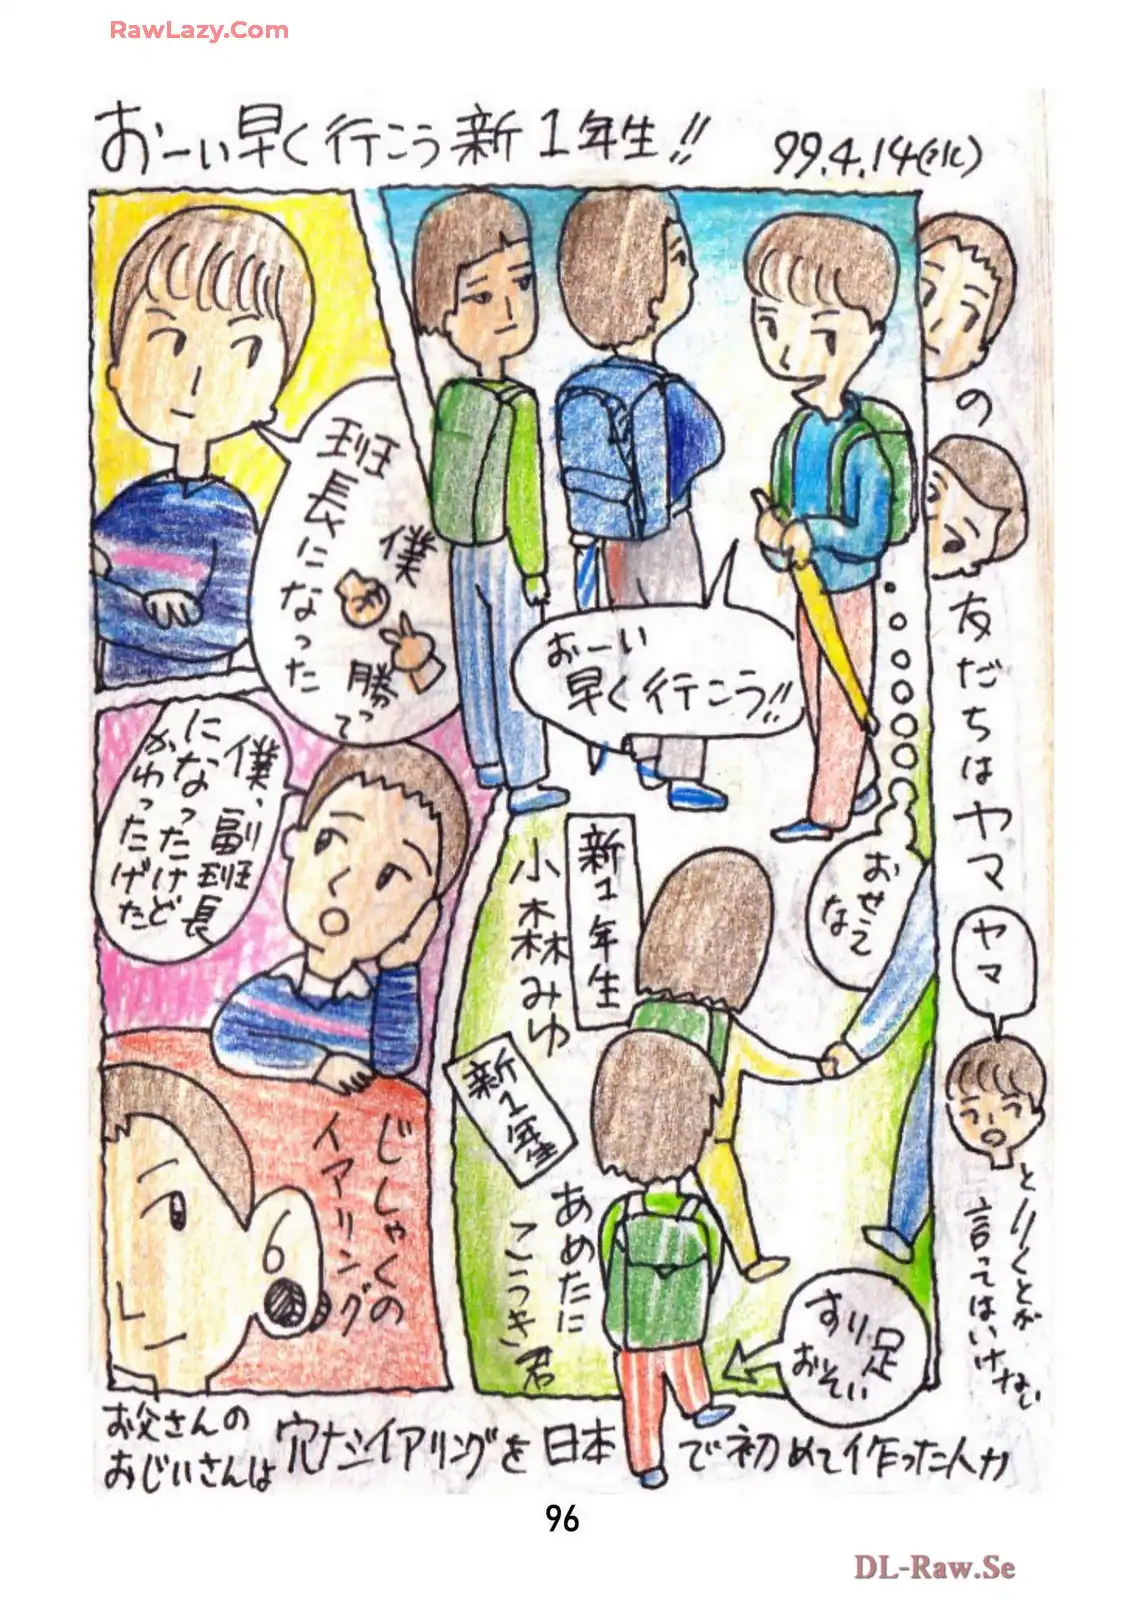 RawLazy.Com
おーい早く行こう新1年生!!
99.4.14(水)
班長になった
僕
勝って
おーい
早く行こう!!
の
友だちはヤマ
ヤマ
とりくとが
言ってはいけない
僕、副班長
になったけど
かわったげた
おせて
な
新1年生
小森みゆ
新1年生
あめたに
こうき君
じしゃくの
イアリング
すり足
おそい
お父さんの
おじいさんは
穴ナシイアリングを日本で初めて作った人カ
96
DL-Raw.Se